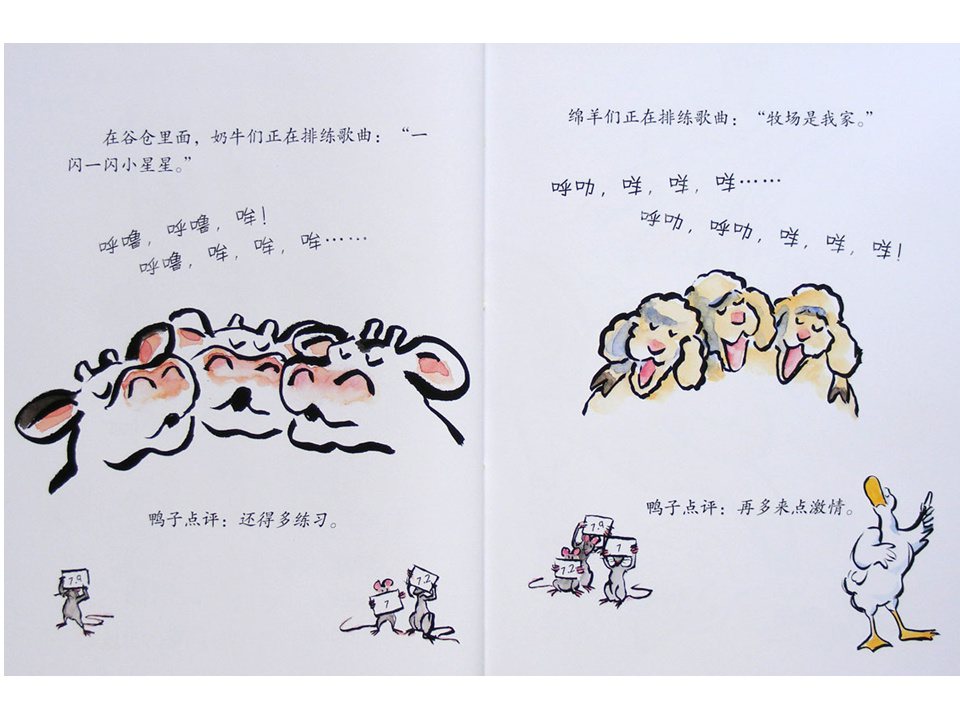 在谷仓里面，奶牛们正在排练歌曲：“一
闪一闪小星星。”
呼噜，呼噜，哞！
呼噜，哞，哞，哞……
鸭子点评：还得多练习。
7.9
7
7.2
绵羊们正在排练歌曲：“牧场是我家。”
呼叻，咩，咩，咩……
呼叻，呼叻，咩，咩，咩！
鸭子点评：再多来点激情。
7.9
7
7.2